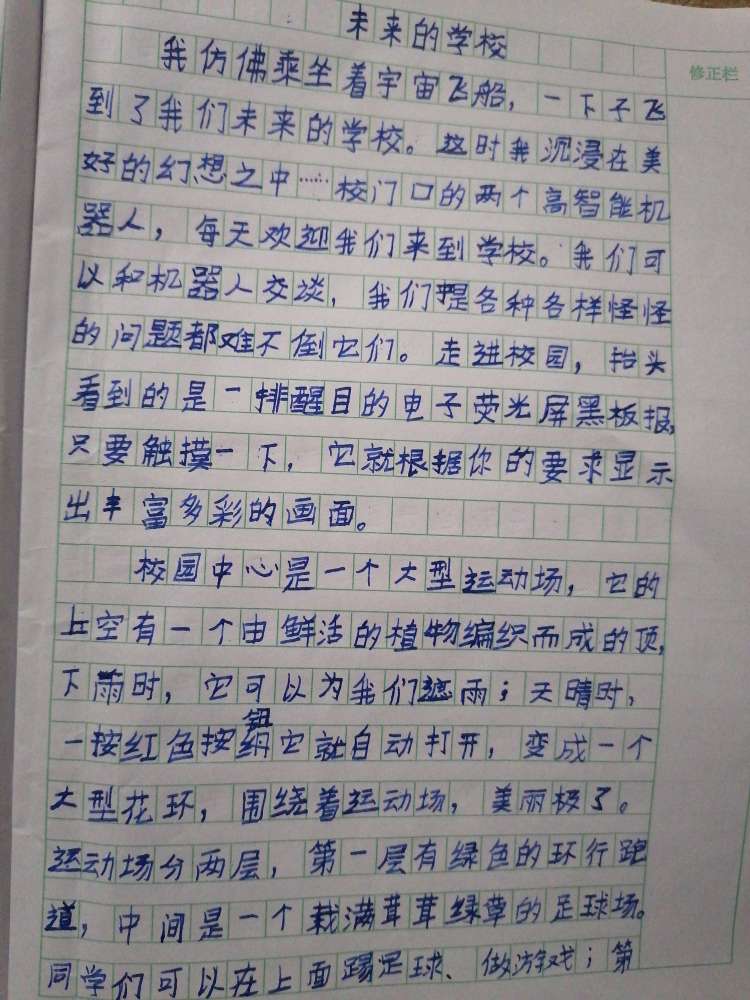 未来的学校
修正栏
我仿佛乘坐着宇宙飞船，一下子飞
到了我们未来的学校。这时我沉浸在美
好的幻想之中……校门口的两个高智能机
器人，每天欢迎我们来到学校。我们可
以和机器人交谈，我们提各种各样怪怪
的问题都难不倒它们。走进校园，抬头
看到的是一排醒目的电子荧光屏黑板报，
只要触摸一下，它就根据你的要求显示
出丰富多彩的画面。
校园中心是一个大型运动场，它的
上空有一个由鲜活的植物编织而成的顶，
下雨时，它可以为我们遮雨；天晴时，
一按红色按钮它就自动打开，变成一个
大型花环，围绕着运动场，美丽极了。
运动场分两层，第一层有绿色的环行跑
道，中间是一个栽满茸茸绿草的足球场。
同学们可以在上面踢足球、做游戏；第